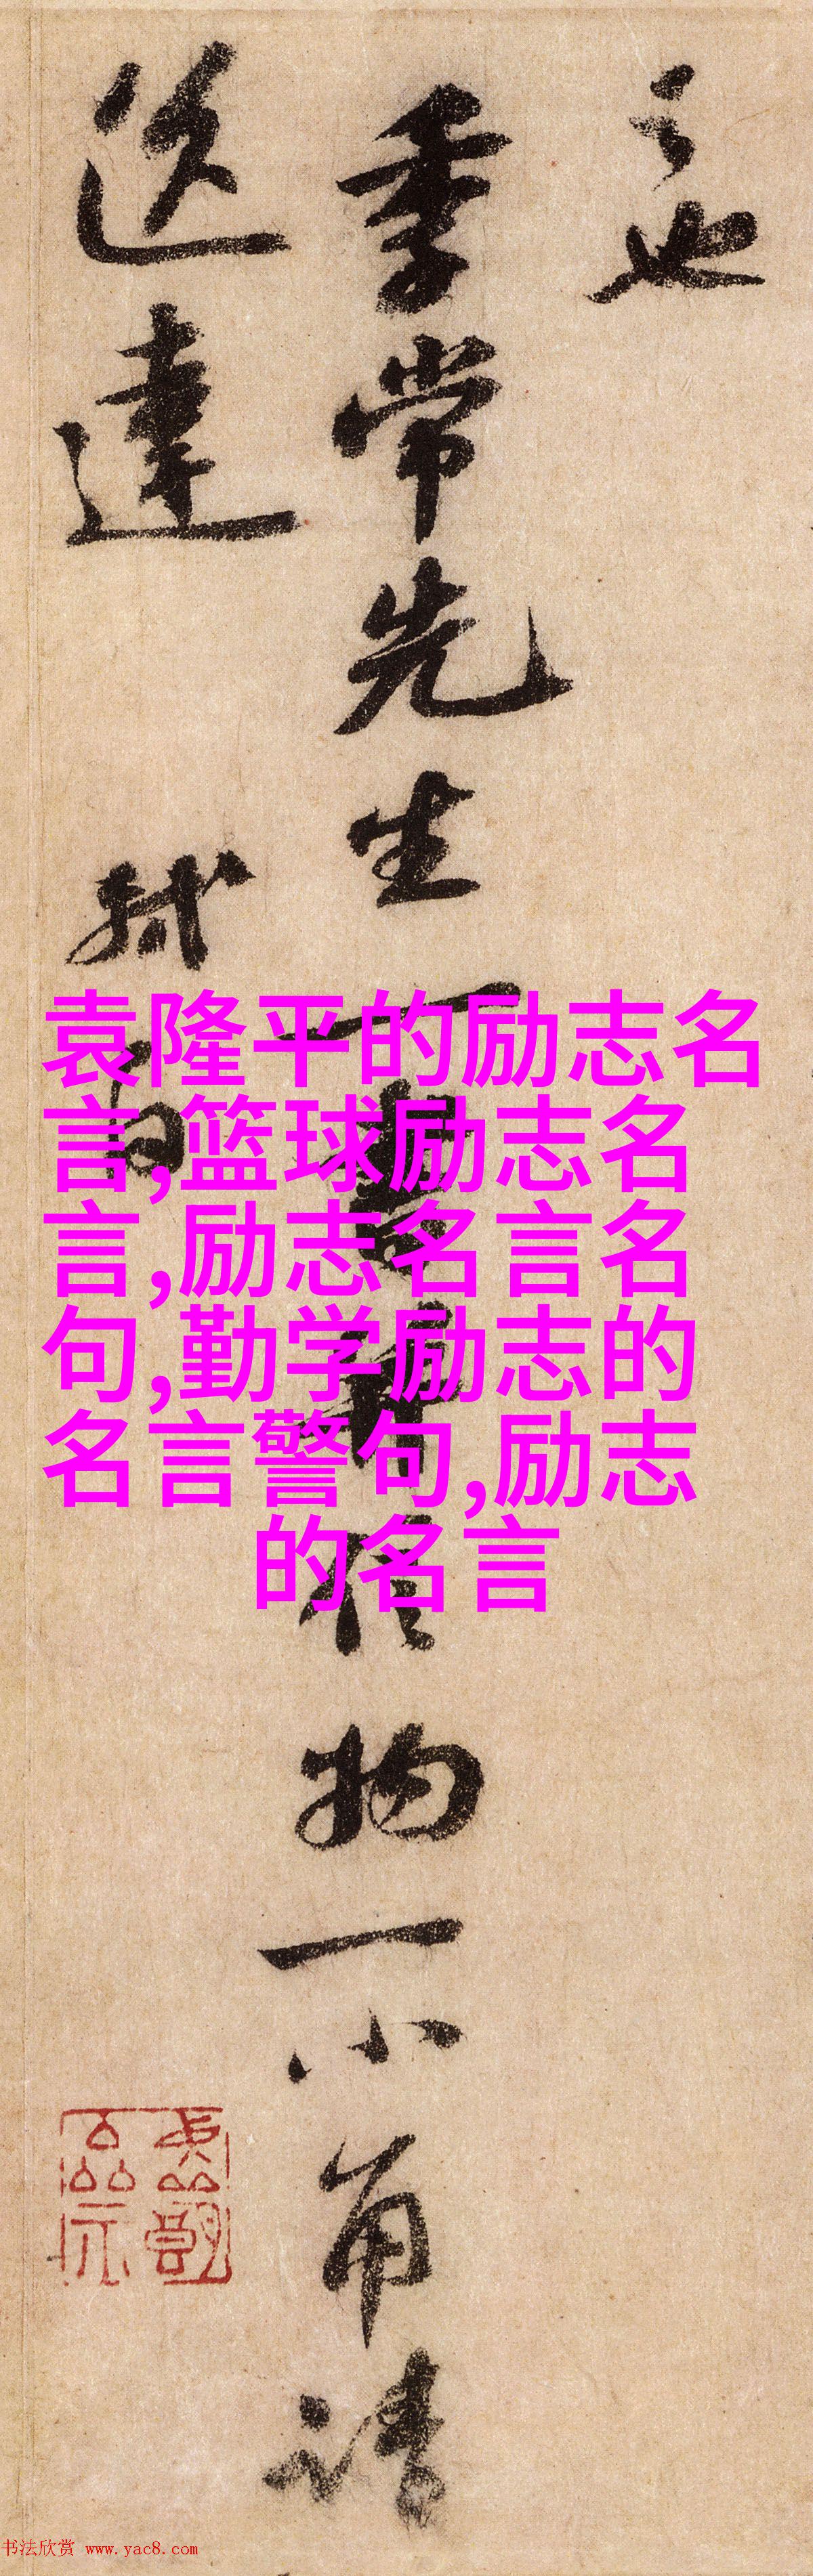 之也
季常先生一書并信物一小角請
送達
軾白
袁隆平的励志名
言,篮球励志名
言,励志名言名
句,勤学励志的
名言警句,励志
的名言
书法欣赏 www.yac8.com